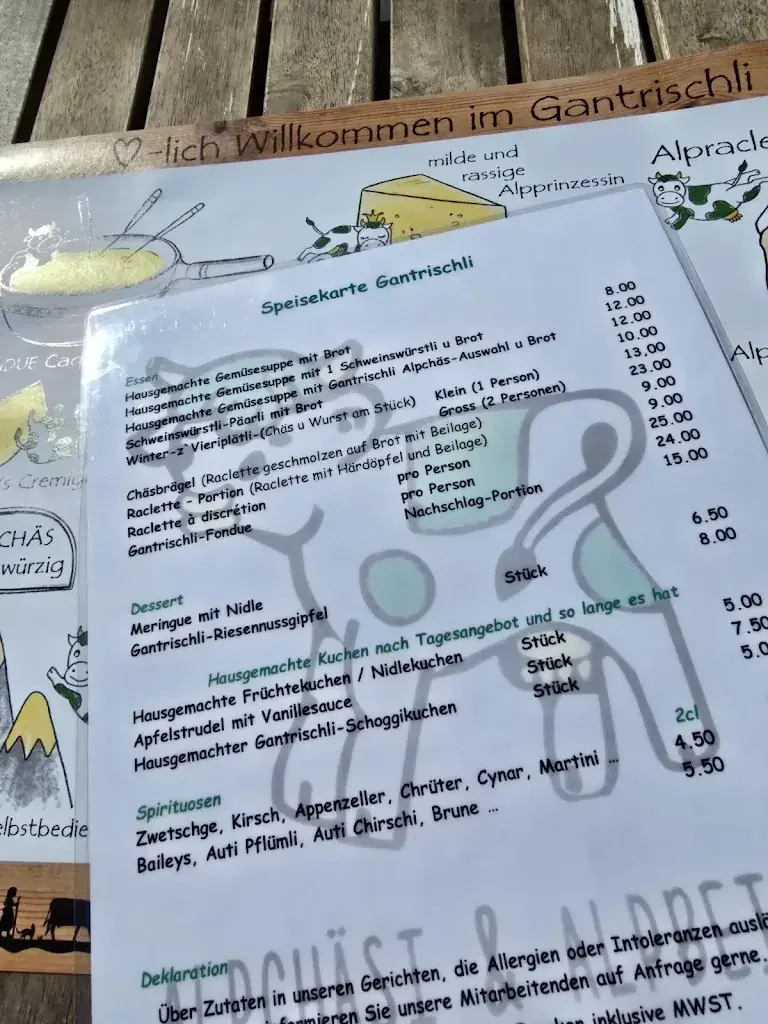 ♡-lich Willkommen im Gantrischli
milde und
rassige
Alpprinzessin
CHÄS
würzig
Speisekarte Gantrischli
Essen
Hausgemachte Gemüsesuppe mit Brot 8.00
Hausgemachte Gemüsesuppe mit 1 Schweinswürstli u Brot 12.00
Hausgemachte Gemüsesuppe mit Gantrischli Alpchäs-Auswahl u Brot 12.00
Schweinswürstli-Päarli mit Brot 10.00
Winter-z`Vieriplätli-(Chäs u Wurst am Stück) Klein (1 Person) 13.00
Gross (2 Personen) 23.00
Chäsbrägel (Raclette geschmolzen auf Brot mit Beilage) 9.00
Raclette - Portion (Raclette mit Härdöpfel und Beilage) 9.00
Raclette à discrétion pro Person 25.00
Gantrischli-Fondue pro Person 24.00
Nachschlag-Portion 15.00
Dessert
Meringue mit Nidle 6.50
Gantrischli-Riesennussgipfel Stück 8.00
Hausgemachte Kuchen nach Tagesangebot und so lange es hat
Hausgemachte Früchtekuchen / Nidlekuchen Stück 5.00
Apfelstrudel mit Vanillesauce Stück 7.50
Hausgemachter Gantrischli-Schoggikuchen Stück 5.0
Spirituosen 2cl
Zwetschge, Kirsch, Appenzeller, Chrüter, Cynar, Martini ... 4.50
Baileys, Auti Pflümli, Auti Chirschi, Brune ... 5.50
ALPCHÄSI & ALPBE
Deklaration
Über Zutaten in unseren Gerichten, die Allergien oder Intoleranzen auslö
informieren Sie unsere Mitarbeitenden auf Anfrage gerne.
inklusive MWST.